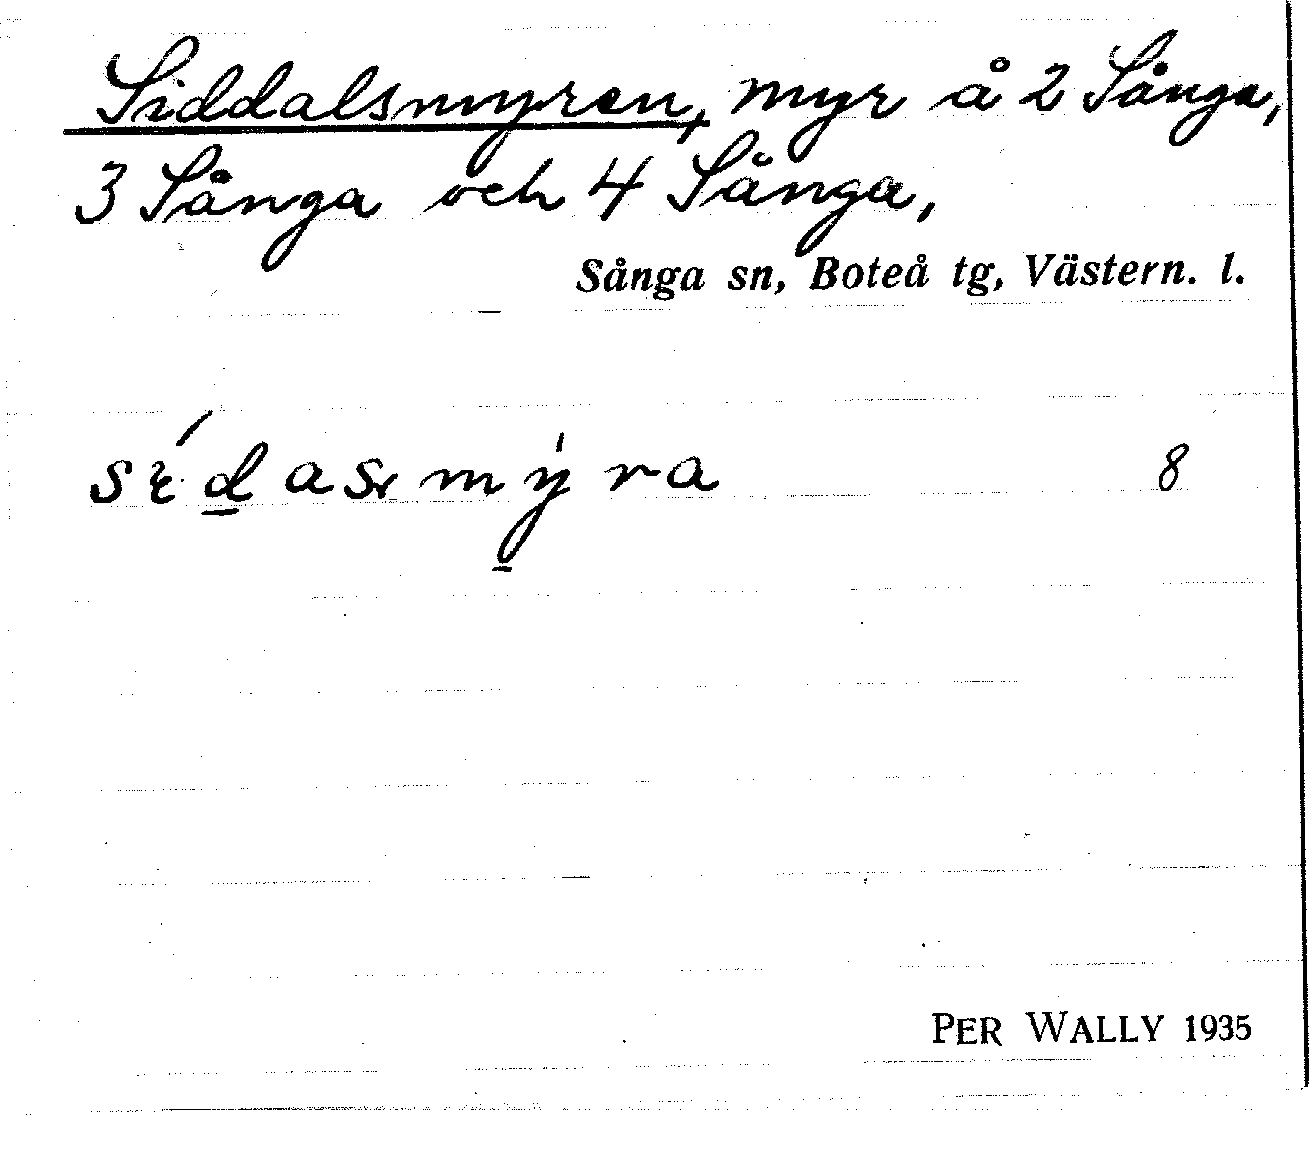 Siddalsmyren, myr å 2 Sånga,
3 Sånga och 4 Sånga,
Sånga sn, Boteå tg, Västern. l.
sídasmýra 8
PER WALLY 1935